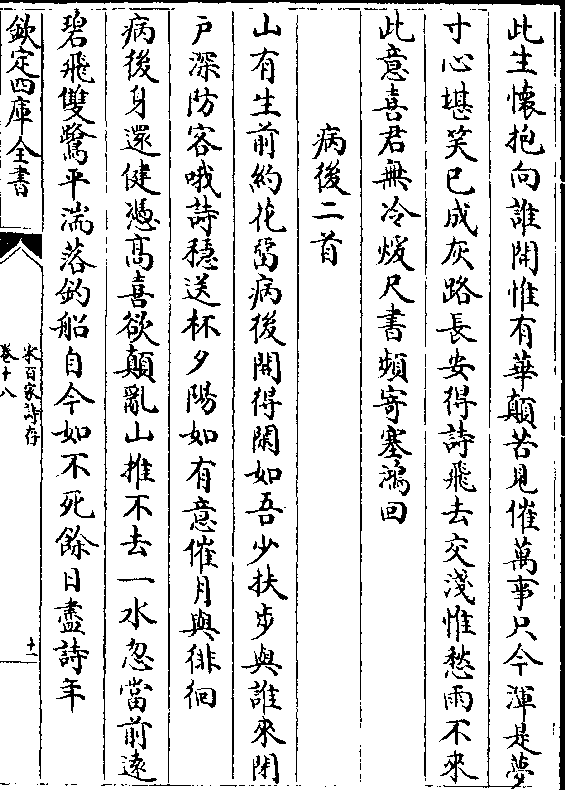 此生懷抱向誰開惟有華顛苦見催萬事只今渾是夢
寸心堪笑已成灰路長安得詩飛去交淺惟愁雨不來
此意喜君無冷煖尺書頻寄塞鴻回
病後二首
山有生前約花當病後開得閑如吾少扶步與誰來閉
戶深防客哦詩穩送杯夕陽如有意催月與徘徊
病後身還健憑高喜欲顛亂山推不去一水忽當前遠
碧飛雙鷺平湍落釣船自今如不死餘日盡詩年
欽定四庫全書
宋百家詩存
卷十八
十一